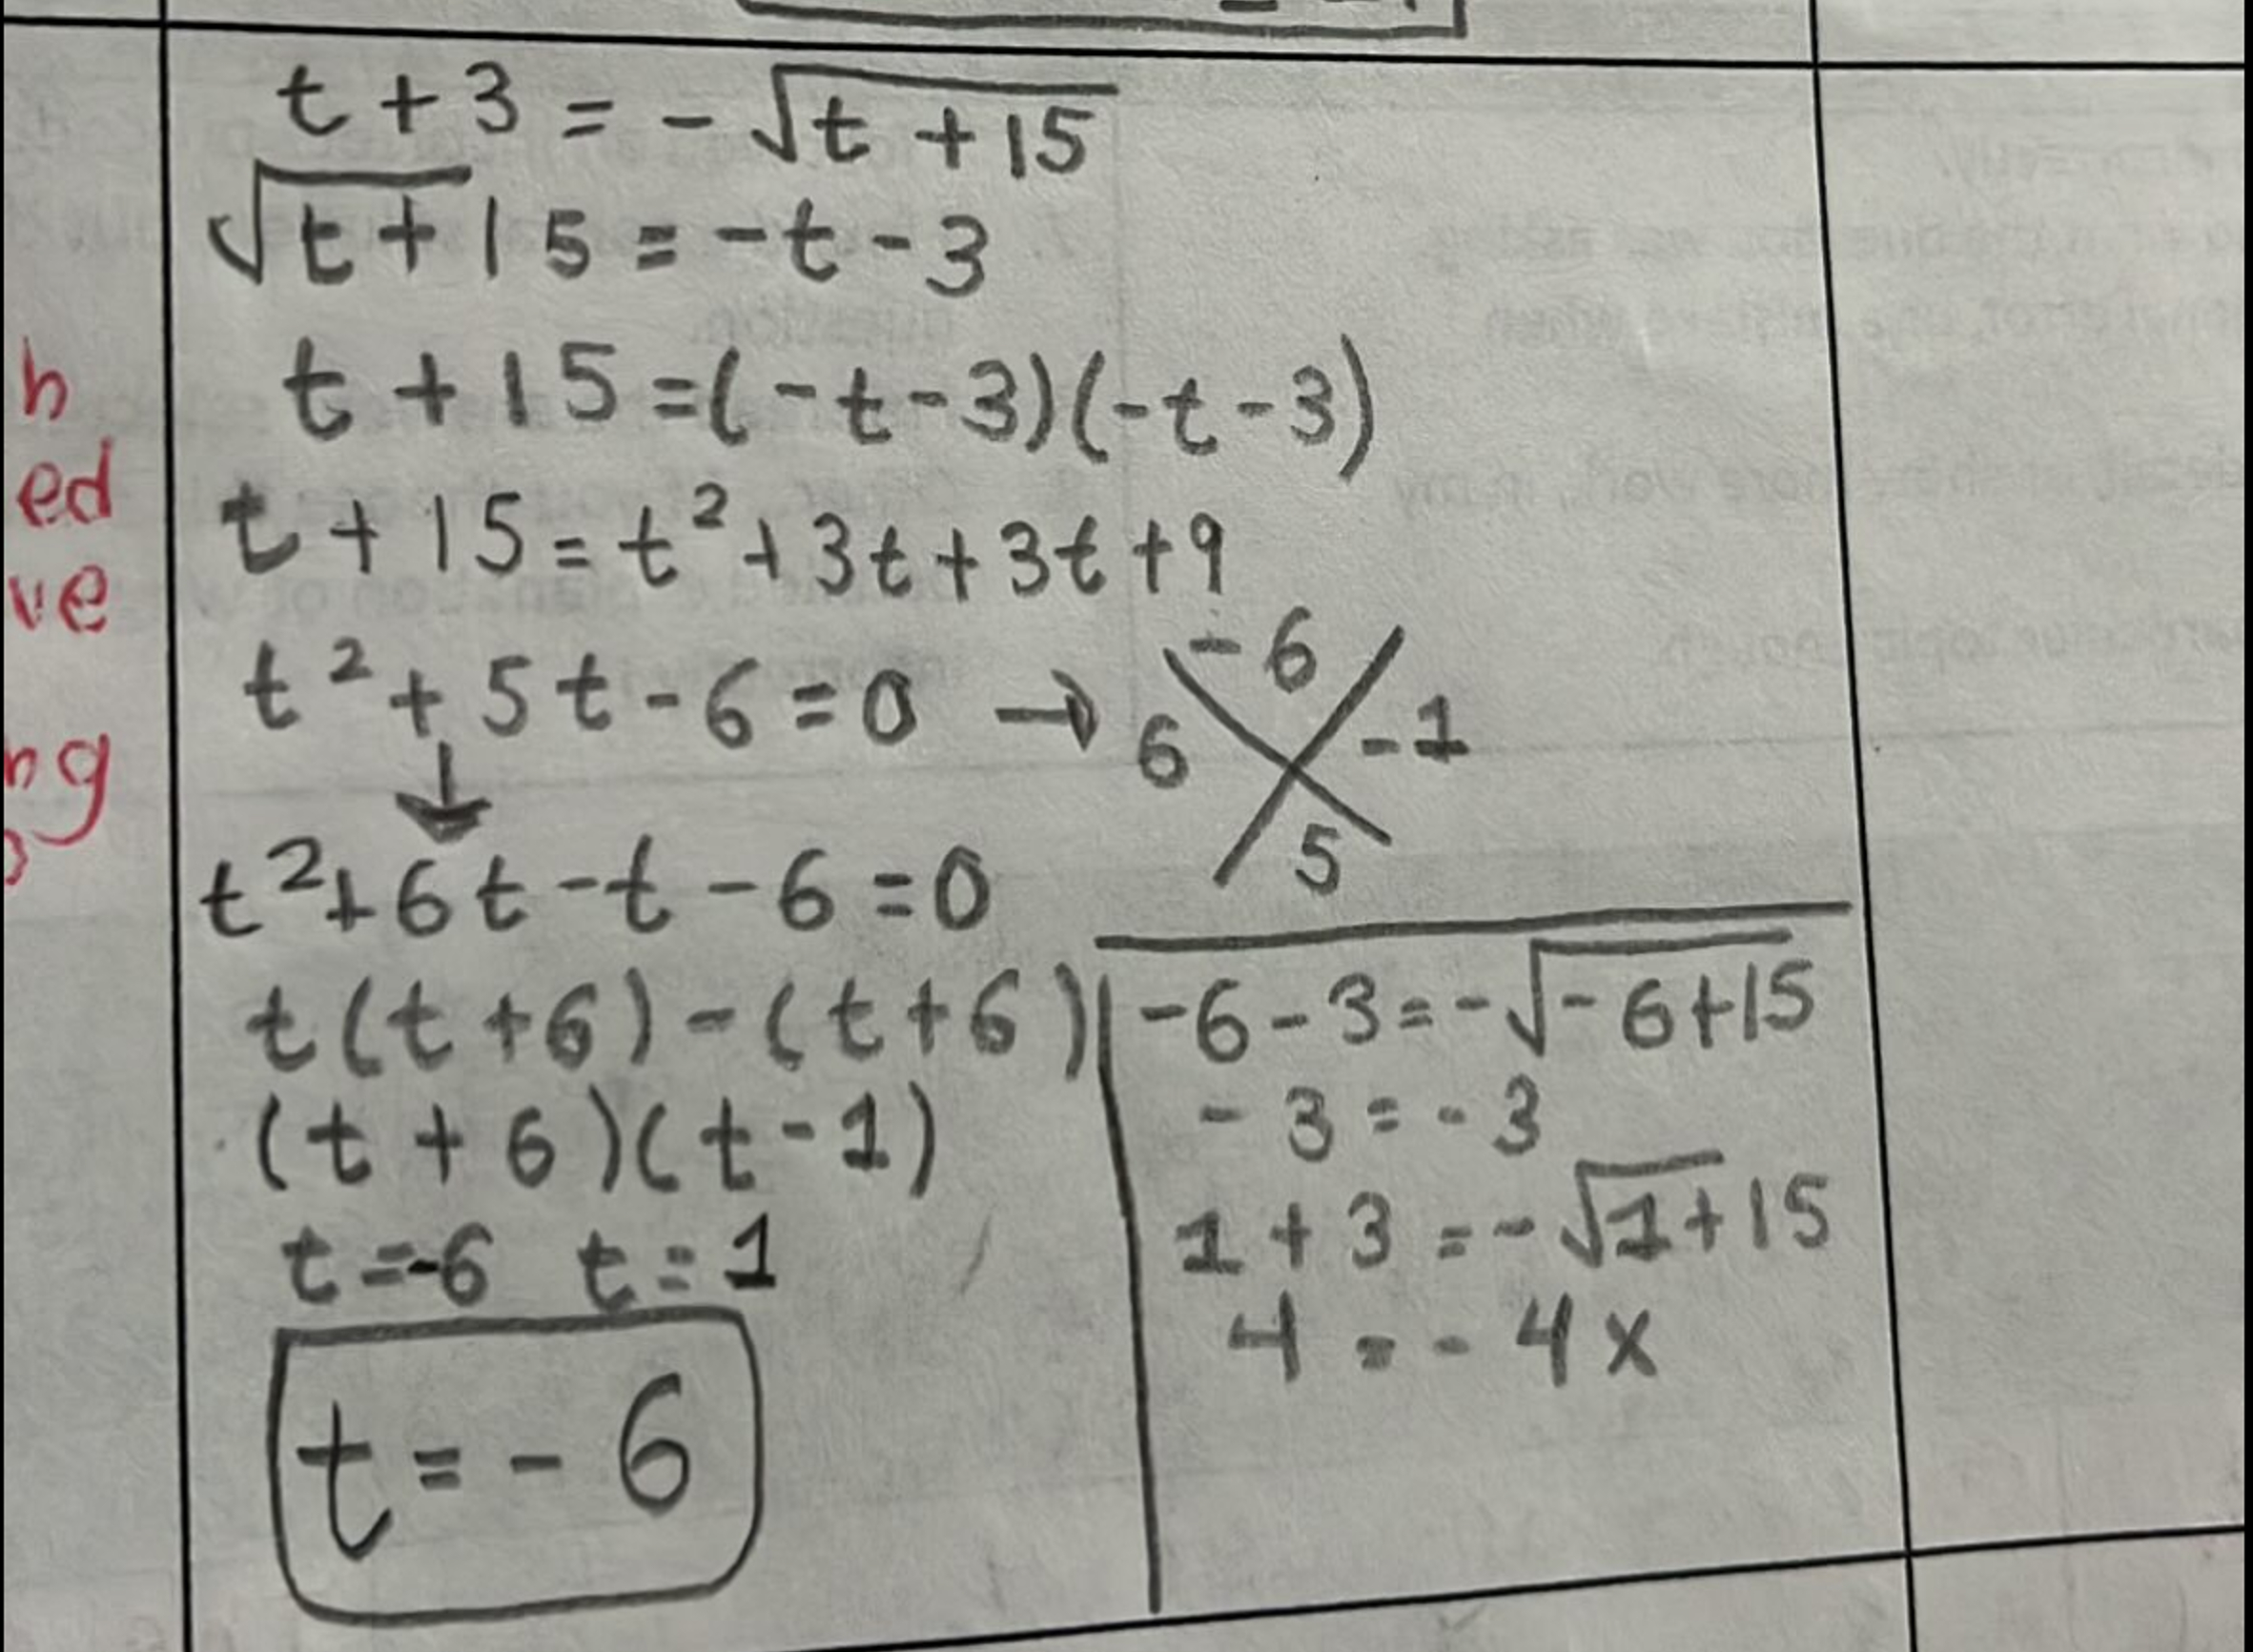 t + 3 = -√t + 15
√t + 15 = -t - 3
t + 15 = (-t - 3)(-t - 3)
t + 15 = t² + 3t + 3t + 9
t² + 5t - 6 = 0 →
-6
6 -1
5
↓
t² + 6t - t - 6 = 0
t(t + 6) - (t + 6)
(t + 6)(t - 1)
t = -6 t = 1
t = - 6
-6 - 3 = -√-6 + 15
- 3 = - 3
1 + 3 = -√1 + 15
4 = - 4 x
h
ed
ve
ng